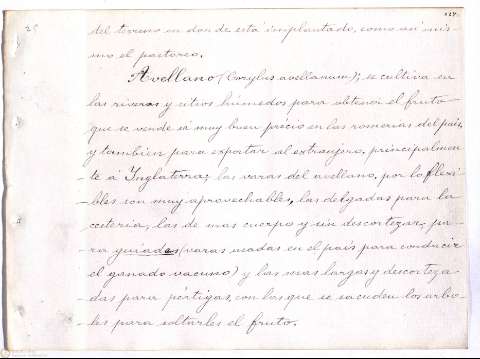 del terreno en donde está implantado, como así mis-
mo el pastoreo.
Avellano (Corylus avellanum); se cultiva en
las riveras y sitios húmedos para obtener el fruto
que se vende á muy buen précio en las romerias del pais,
y tambien para exportar al extranjero, principalmen
te á Inglaterra; las varas del avellano, por lo flexi-
bles son muy aprovechables, las delgadas para la
cesteria, las de mas cuerpo y sin descortezar, pa-
ra guiadas (varas usadas en el país para conducir
el ganado vacuno) y las mas largas y descorteza-
das para pértigas, con las que se sacuden los arbo-
les para soltarles el fruto.